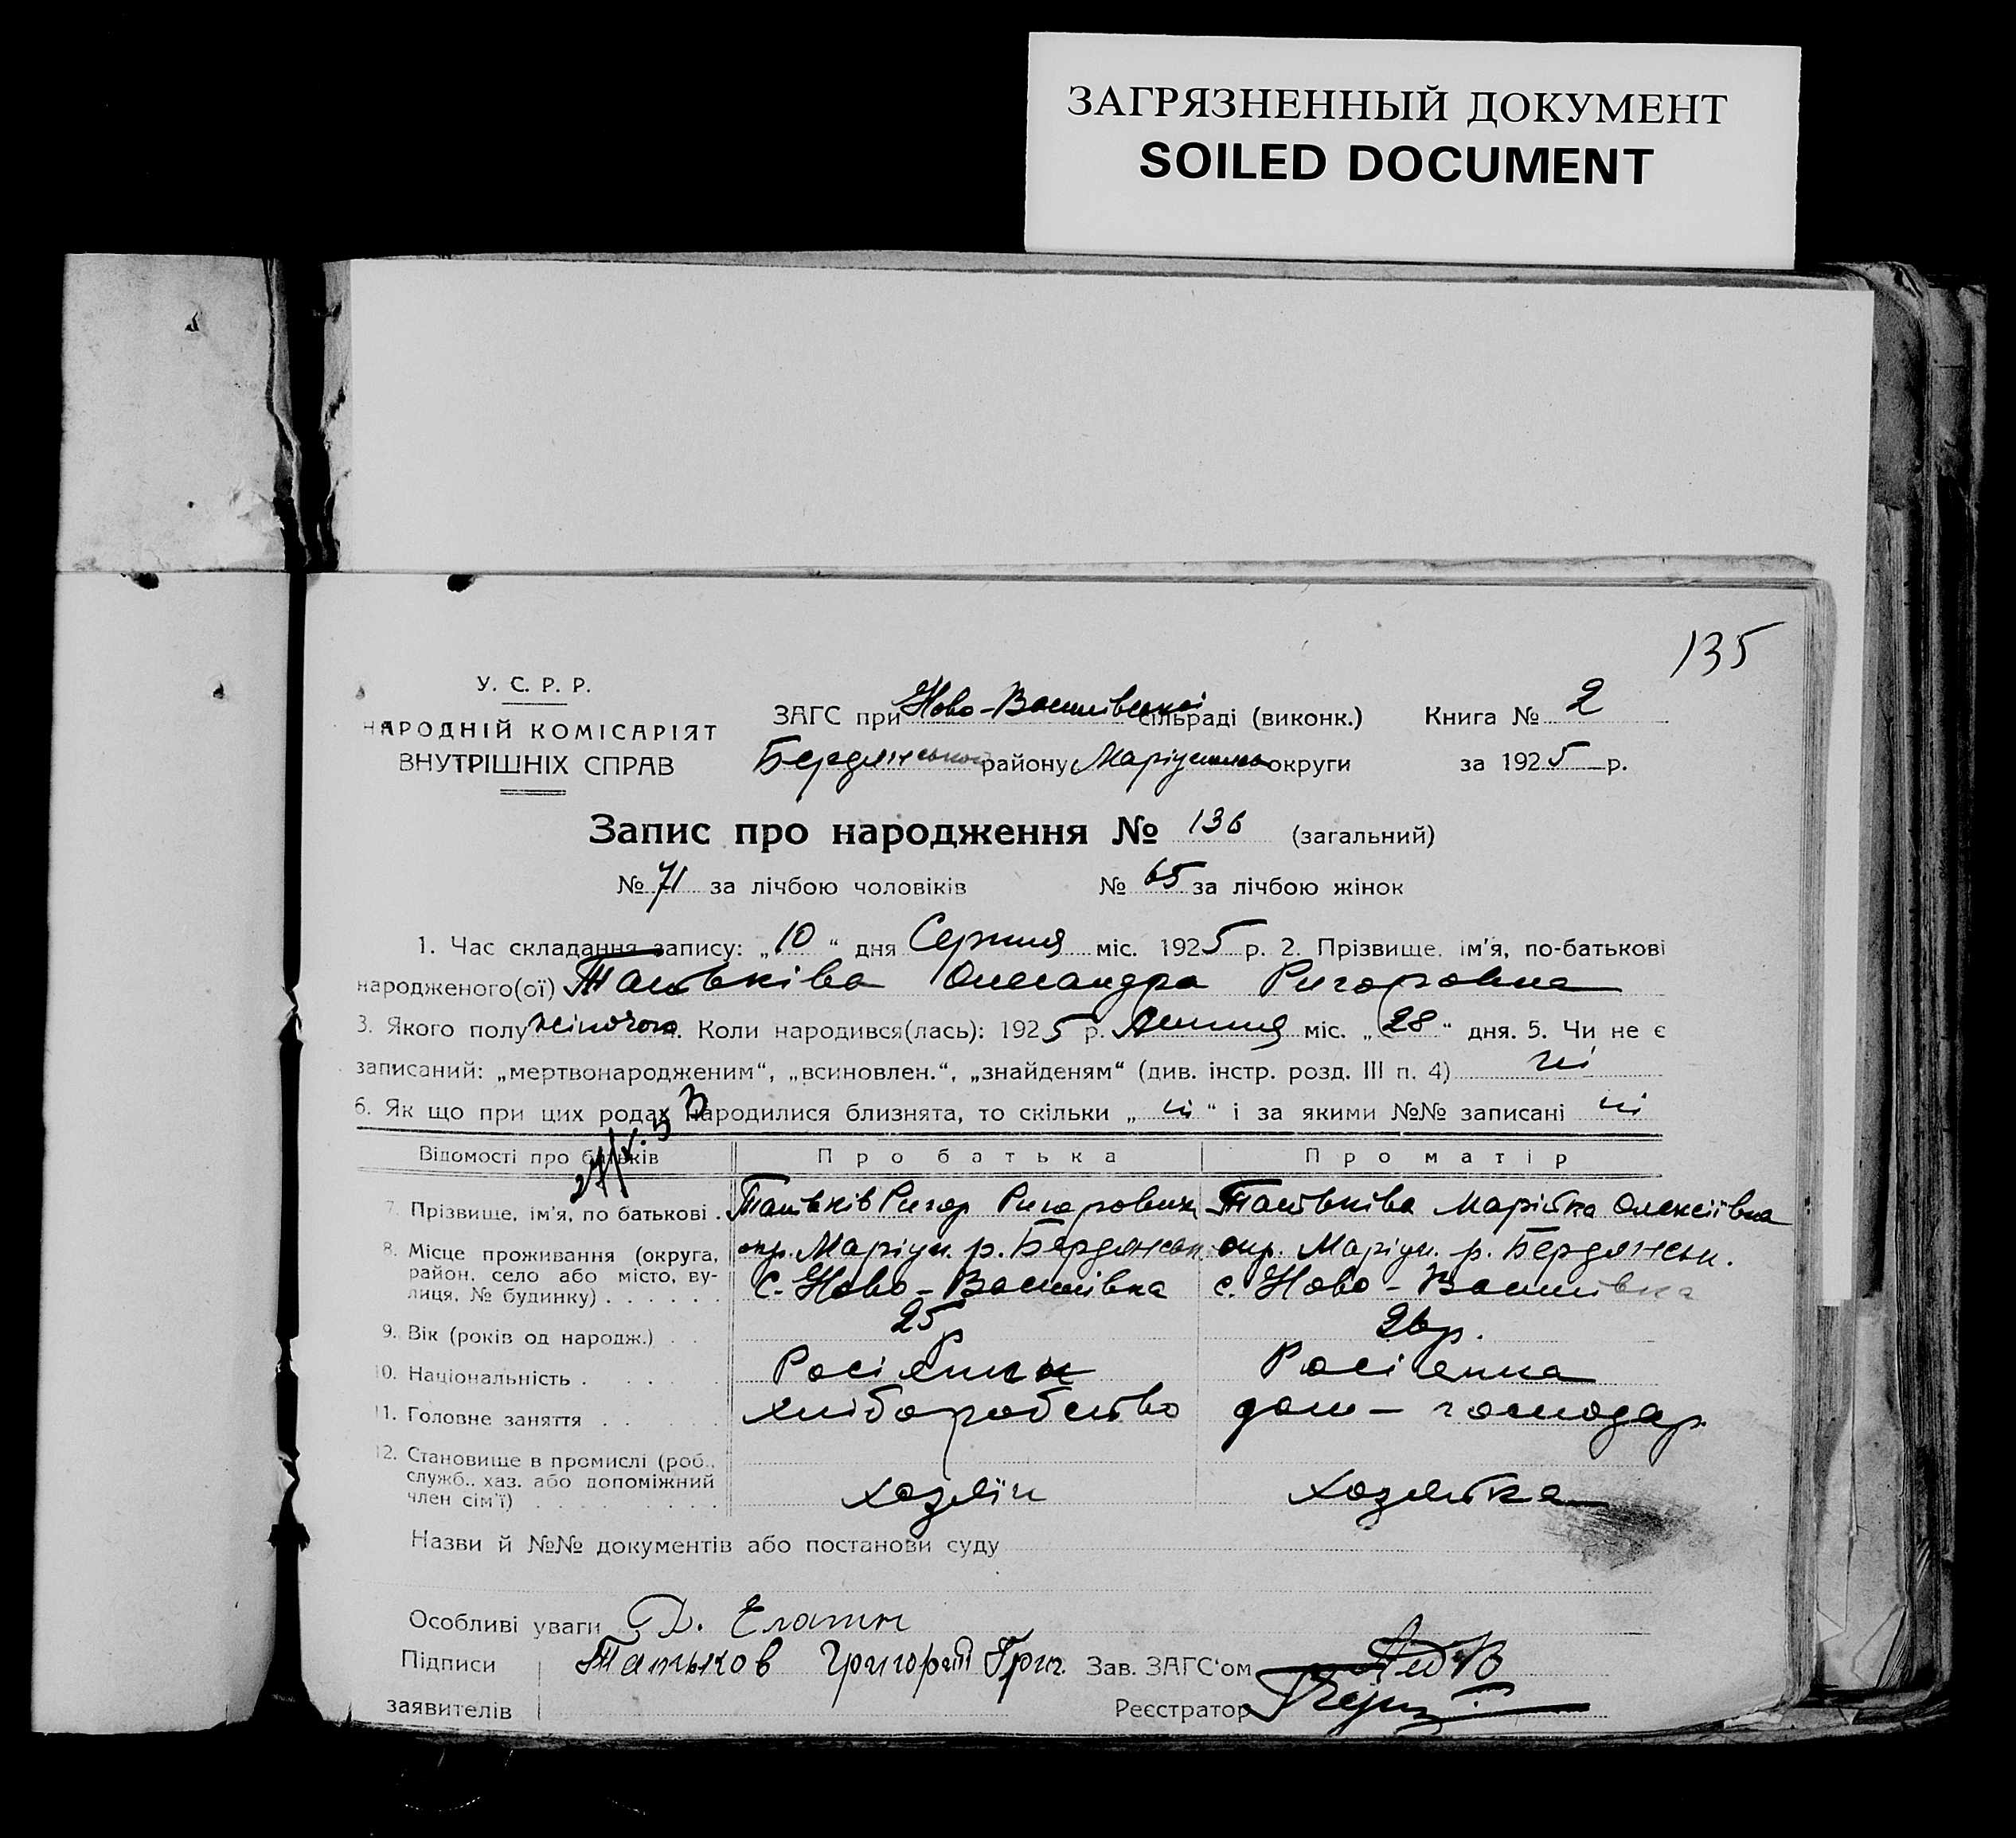 ЗАГРЯЗНЕННЫЙ ДОКУМЕНТ
SOILED DOCUMENT
135
У. С. Р. Р.
НАРОДНІЙ КОМІСАРІЯТ
ВНУТРІШНІХ СПРАВ
ЗАГС при Ново-Василівській сільраді (виконк.) Книга № 2
Бердянського району Маріупольськ округи за 1925 р.
Запис про народження № 136 (загальний)
№ 71 за лічбою чоловіків № 65 за лічбою жінок
1. Час складання запису: „10“ дня Серпня міс. 1925 р. 2. Прізвище, ім'я, по-батькові
народженого(ої) Таньківа Олександра Ригоровна
3. Якого полу жіночого 4. Коли народився(лась): 1925 р. Липня міс. „28“ дня. 5. Чи не є
записаний: „мертвонародженим“, „всиновлен.“, „знайденям“ (див. інстр. розд. III п. 4) ні
6. Як що при цих родах народилися близнята, то скільки „ ні “ і за якими №№ записані ні
Відомості про батьків Про батька Про матір
7. Прізвище, ім'я, по батькові . Таньків Ригор Ригорович Таньківа Марійка Олексіївна
8. Місце проживання (округа, район, село або місто, вулиця, № будинку) . . . . . .
окр. Маріуп. р. Бердянськ. окр. Маріуп. р. Бердянськ.
с. Ново-Василівка с. Ново-Василівка
9. Вік (років од народж.) . . 25 р 26 р.
10. Національність . . . . . Росіянин Росіенка
11. Головне заняття . . . . . хліборобство дом-господар.
12. Становище в промислі (роб., служб., хаз. або допоміжний член сім'ї) . . . . . . . . .
хозяїн хозяйка
Назви й №№ документів або постанови суду
Особливі уваги
Підписи Таньков Григорій Григ. Зав. ЗАГС'ом
заявителів Реєстратор